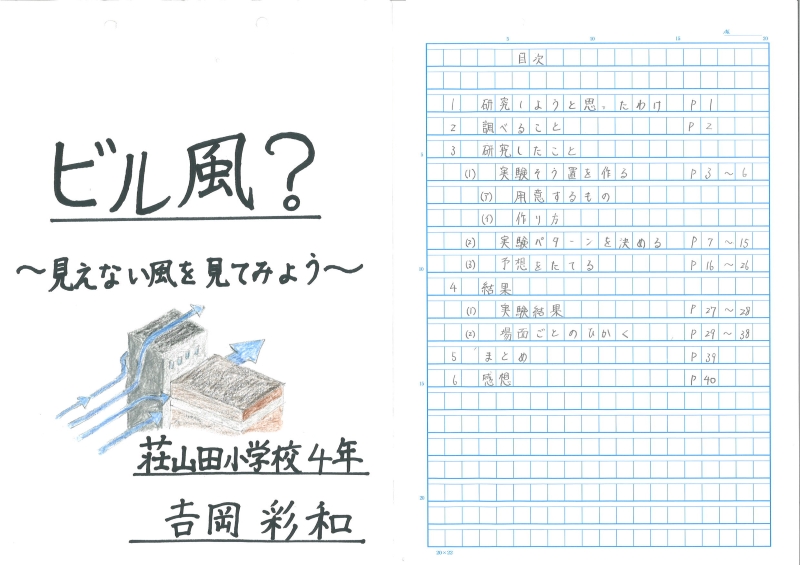 ビル風?
〜見えない風を見てみよう〜
荘山田小学校4年
吉岡 彩和
No.
5 10 15 20
目次
1 研究しようと思ったわけ P 1
2 調べること P 2
3 研究したこと
(1) 実験そう置を作る P 3 〜 6
(ア) 用意するもの
(イ) 作り方
(2) 実験パターンを決める P 7 〜 15
(3) 予想をたてる P 16 〜 26
4 結果
(1) 実験結果 P 27 〜 28
(2) 場面ごとのひかく P 29 〜 38
5 まとめ P 39
6 感想 P 40
5
10
15
20
20×22